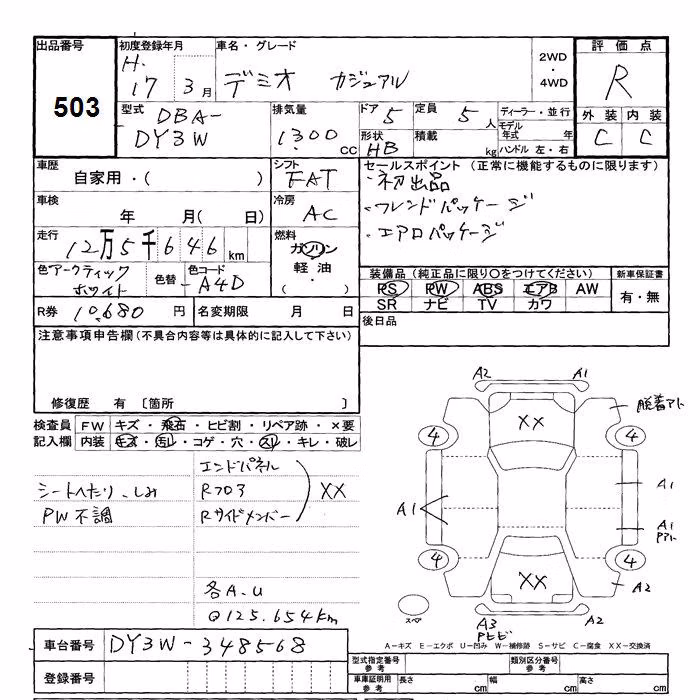 出品番号 初度登録年月 車名・グレード 2WD ・ 4WD 評価点
503
H. 17 3月 デミオ カジュアル R
型式 DBA- DY3W 排気量 1300 CC ドア 5 定員 5人 ディーラー・並行 外装 内装
形状 HB 積載 kg モデル年式 年 ハンドル 左・右 C C
車歴 自家用・( ) シフト FAT セールスポイント (正常に機能するものに限ります)
・初出品
車検 年 月( 日) 冷房 AC ・フレンドパッケージ
・エアロパッケージ
走行 12万5千646km 燃料 ガソリン・軽油・( )
色 アークティックホワイト 色替 色コード A4D 装備品 (純正品に限り○をつけてください) 新車保証書
PS PW ABS エアB AW 有・無
SR ナビ TV カワ
R券 10,680円 名変期限 月 日 後日品
注意事項申告欄 (不具合内容等は具体的に記入して下さい)
修復歴 有 〔箇所 〕
検査員記入欄 FW キズ・飛石・ヒビ割・リペア跡・×要
内装 キズ・汚レ・コゲ・穴・スレ・キレ・破レ
エンドパネル
シートへたり、しみ Rフロア XX
PW不調 Rサイドメンバー
各A.U
@125.654km
A2 A1
XX 脱着アト
4 4
A1 A1
A1 Pアト
4 4
XX A2
スペア A3 Pヒビ A2
A-キズ E-エクボ U-凹み W-補修跡 S-サビ C-腐食 XX-交換済
車台番号 DY3W-348568
登録番号
型式指定番号 参考 類別区分番号 参考
車庫証明用 参考 長さ cm 幅 cm 高さ cm